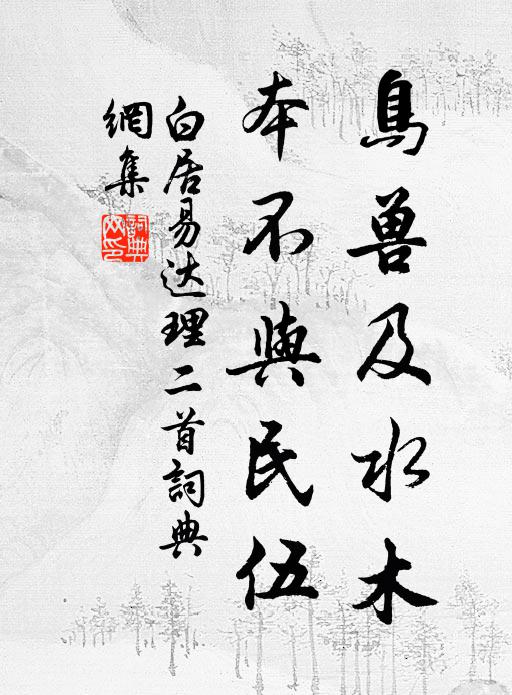 鳥兽及水木
本不與民伍
白居易达理二首詞典
網集
詞典
网印